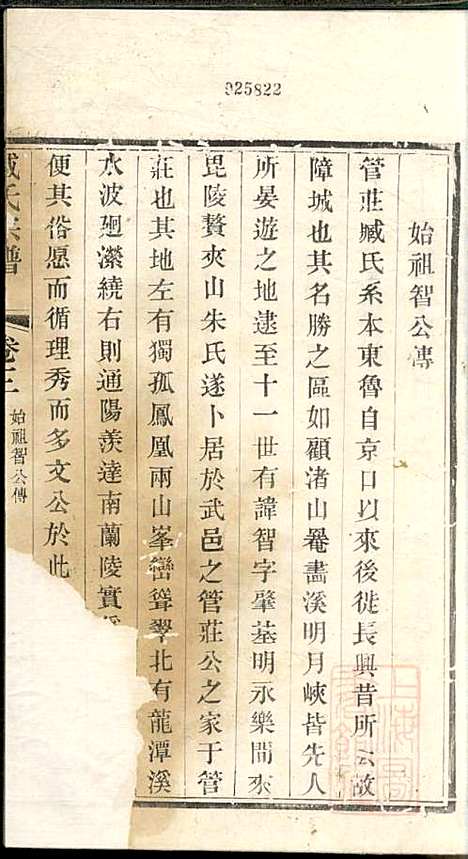 925822
始祖智公傳
管莊臧氏系本東魯自京口以來後徙長興昔所云故
障城也其名勝之區如顧渚山罨畫溪明月峽皆先人
所晏遊之地逮至十一世有諱智字肇基明永樂間來
毘陵贅夾山朱氏遂卜居於武邑之管莊公之家于管
莊也其地左有獨孤鳳凰兩山峯巒聳翠北有龍潭溪
水波廻瀠繞右則通陽羨達南蘭陵實
便其俗愿而循理秀而多文公於此
臧氏宗譜
卷二
始祖智公傳
上海